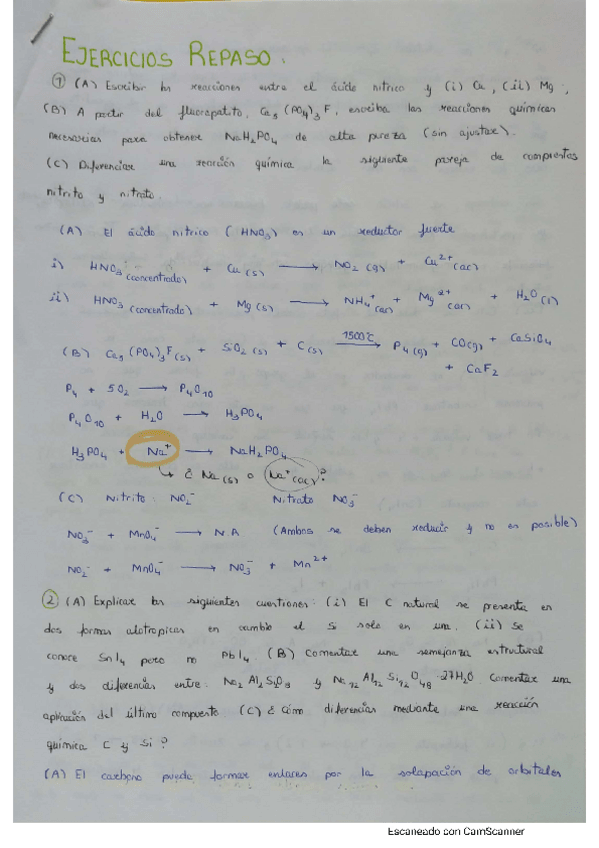 EJERCICIOS REPASO.
① (A) Escribir las reacciones entre el ácido nítrico y (i) Cu, (ii) Mg.
(B) A partir del fluorapatito, Ca₅(PO₄)₃F, escriba las reacciones químicas
necesarias para obtener NaH₂PO₄ de alta pureza (sin ajustar).
(C) Diferenciar una reacción química la siguiente pareja de compuestos
nitrito y nitrato.
(A) El ácido nítrico (HNO₃) es un reductor fuerte
i) HNO₃ (concentrado) + Cu (s) → NO₂ (g) + Cu²⁺ (ac)
ii) HNO₃ (concentrado) + Mg (s) → NH₄⁺ (ac) + Mg²⁺ (ac) + H₂O (l)
(B) Ca₅(PO₄)₃F (s) + SiO₂ (s) + C (s) 1500°C → P₄ (g) + CO (g) + CaSiO₄
+ CaF₂
P₄ + 5O₂ → P₄O₁₀
P₄O₁₀ + H₂O → H₃PO₄
H₃PO₄ + Na⁺ → NaH₂PO₄
↳ ¿ Na (s) o Na⁺ (ac)?
(C) Nitrito: NO₂⁻ Nitrato NO₃⁻
NO₃⁻ + MnO₄⁻ → N.A (Ambos se deben reducir y no es posible)
NO₂⁻ + MnO₄⁻ → NO₃⁻ + Mn²⁺
② (A) Explicar las siguientes cuestiones: (i) El C natural se presenta en
dos formas alotrópicas en cambio el Si solo en una. (ii) Se
conoce SnI₄ pero no PbI₄. (B) Comentar una semejanza estructural
y dos diferencias entre: Na₂Al₂Si₂O₈ y Na₁₂Al₁₂Si₁₂O₄₈·27H₂O. Comentar una
aplicación del último compuesto. (C) ¿ Cómo diferencias mediante una reacción
química C y Si?
(A) El carbono puede formar enlaces por la solapación de orbitales
Escaneado con CamScanner